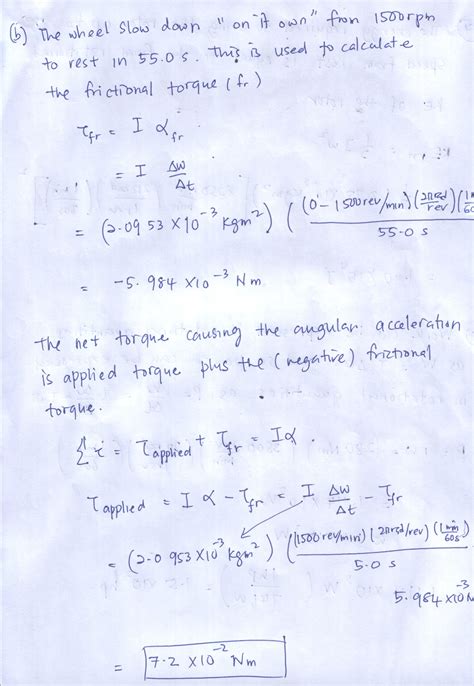 (b) The wheel slow down "on it own" from 1500rpm
to rest in 55.0 s. This is used to calculate
the frictional torque (fr)
τfr = I αfr
= I Δω/Δt
= (2.0953 × 10⁻³ kgm²) ((0-1500rev/min)(2πrad/rev)(1m/60 / 55.0 s
= -5.984 × 10⁻³ Nm
The net torque causing the angular acceleration
is applied torque plus the (negative) frictional
torque.
Στ = τapplied + τfr = Iα.
τapplied = Iα - τfr = I Δω/Δt - τfr
= (2.0953 × 10⁻³ kgm²) ((1500rev/min)(2πrad/rev)(1min/60s) / 5.0 s
5.984 × 10⁻³ N
= 7.2 × 10⁻² Nm